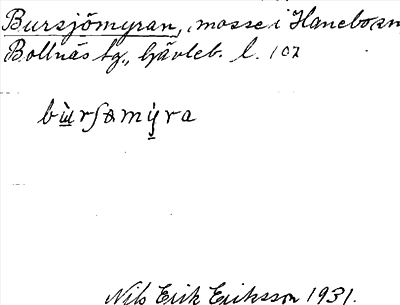 Bursjömyran, mosse i Hanebo sn
Bollnäs tg., Gävleb. l. 107
bù̲rʃɵmý̲ra
Nils Erik Eriksson 1931.